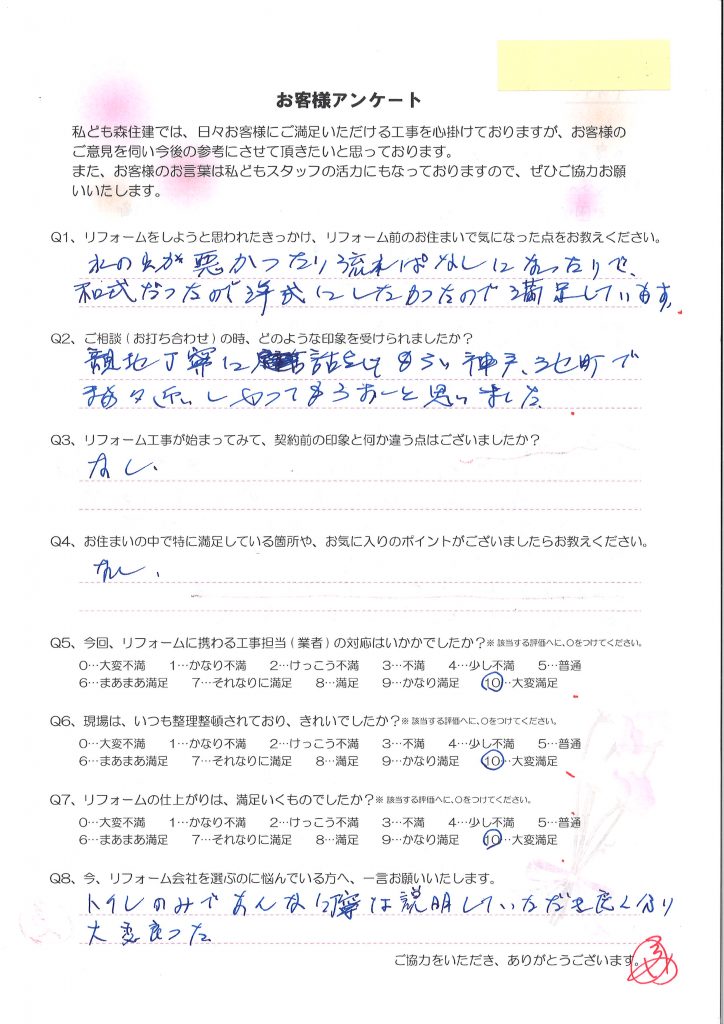 お客様アンケート
私ども森住建では、日々お客様にご満足いただける工事を心掛けておりますが、お客様の
ご意見を伺い今後の参考にさせて頂きたいと思っております。
また、お客様のお言葉は私どもスタッフの活力にもなっておりますので、ぜひご協力お願
いいたします。
Q1、リフォームをしようと思われたきっかけ、リフォーム前のお住まいで気になった点をお教えください。
水の出が悪かったり流れぱなしになったりで、
和式だったので洋式にしたかったので満足しています。
Q2、ご相談(お打ち合わせ)の時、どのような印象を受けられましたか?
丁寧に 話をしてもらい神戸、
しやってもらおーと思いました
Q3、リフォーム工事が始まってみて、契約前の印象と何か違う点はございましたか?
なし、
Q4、お住まいの中で特に満足している箇所や、お気に入りのポイントがございましたらお教えください。
なし、
Q5、今回、リフォームに携わる工事担当(業者)の対応はいかがでしたか?※該当する評価へに、○をつけてください。
0…大変不満 1…かなり不満 2…けっこう不満 3…不満 4…少し不満 5…普通
6…まあまあ満足 7…それなりに満足 8…満足 9…かなり満足 10…大変満足
Q6、現場は、いつも整理整頓されており、きれいでしたか?※該当する評価へに、○をつけてください。
0…大変不満 1…かなり不満 2…けっこう不満 3…不満 4…少し不満 5…普通
6…まあまあ満足 7…それなりに満足 8…満足 9…かなり満足 10…大変満足
Q7、リフォームの仕上がりは、満足いくものでしたか?※該当する評価へに、○をつけてください。
0…大変不満 1…かなり不満 2…けっこう不満 3…不満 4…少し不満 5…普通
6…まあまあ満足 7…それなりに満足 8…満足 9…かなり満足 10…大変満足
Q8、今、リフォーム会社を選ぶのに悩んでいる方へ、一言お願いいたします。
トイレのみであんな丁寧な説明していただき良く分り
大変良った
ご協力をいただき、ありがとうございます。